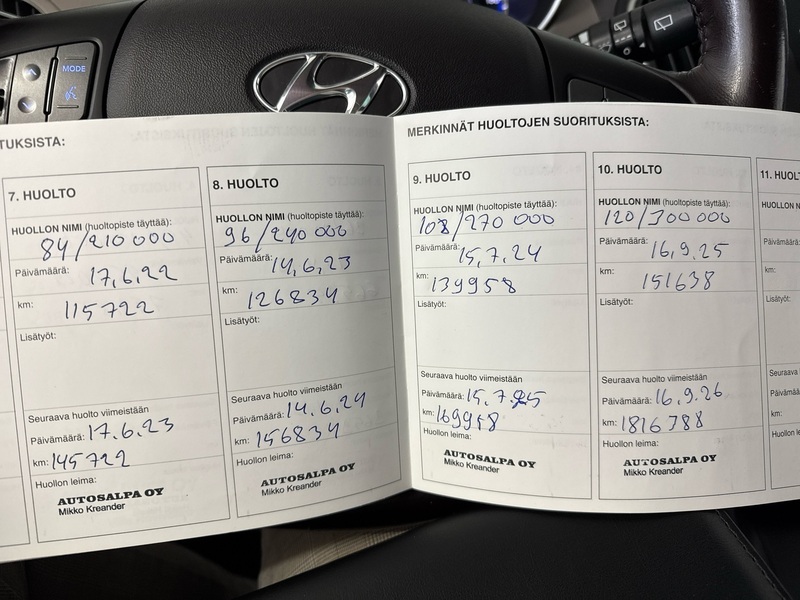 MODE
TUKSISTA:
7. HUOLTO
HUOLLON NIMI (huoltopiste täyttää):
84/210 000
Päivämäärä: 17.6.22
km: 115722
Lisätyöt:
Seuraava huolto viimeistään
Päivämäärä: 17.6.23
km: 145722
Huollon leima:
AUTOSALPA OY
Mikko Kreander
8. HUOLTO
HUOLLON NIMI (huoltopiste täyttää):
96/240 000
Päivämäärä: 14.6.23
km: 126834
Lisätyöt:
Seuraava huolto viimeistään
Päivämäärä: 14.6.24
km: 156834
Huollon leima:
AUTOSALPA OY
Mikko Kreander
MERKINNÄT HUOLTOJEN SUORITUKSISTA:
9. HUOLTO
HUOLLON NIMI (huoltopiste täyttää):
108/270 000
Päivämäärä: 15.7.24
km: 139958
Lisätyöt:
Seuraava huolto viimeistään
Päivämäärä: 15.7.25
km: 169958
Huollon leima:
AUTOSALPA OY
Mikko Kreander
10. HUOLTO
HUOLLON NIMI (huoltopiste täyttää):
120/300 000
Päivämäärä: 16.9.25
km: 151638
Lisätyöt:
Seuraava huolto viimeistään
Päivämäärä: 16.9.26
km:
Huollon leima:
AUTOSALPA OY
Mikko Kreander
11. HUOLT
HUOLLON N
Päivämäärä:
km:
Lisätyöt:
Seuraava h
Päivämäärä
km:
Huollon le